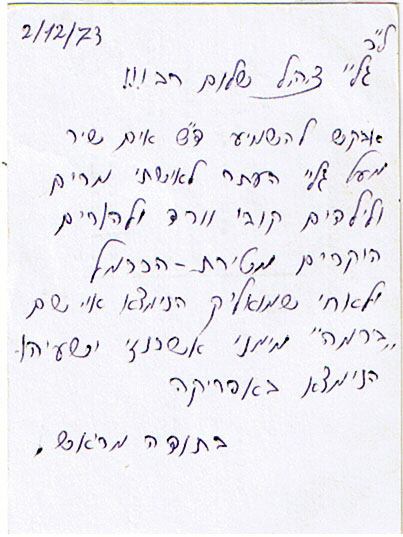 2/12/73
לכ'
גלי צה"ל שלום רב!!!
אבקש להשמיע ד"ש אים שיר
מעל גלי האתר לאישתי מרים
ולילדים קובי וורד ולהורים
היקרים מטירת-הכרמל
ולאחי שמואליק הנימצא אי שם
"ברמה" מימני אשכנזי ישעיהו
הנימצא באפריקה
בתודה מראש.